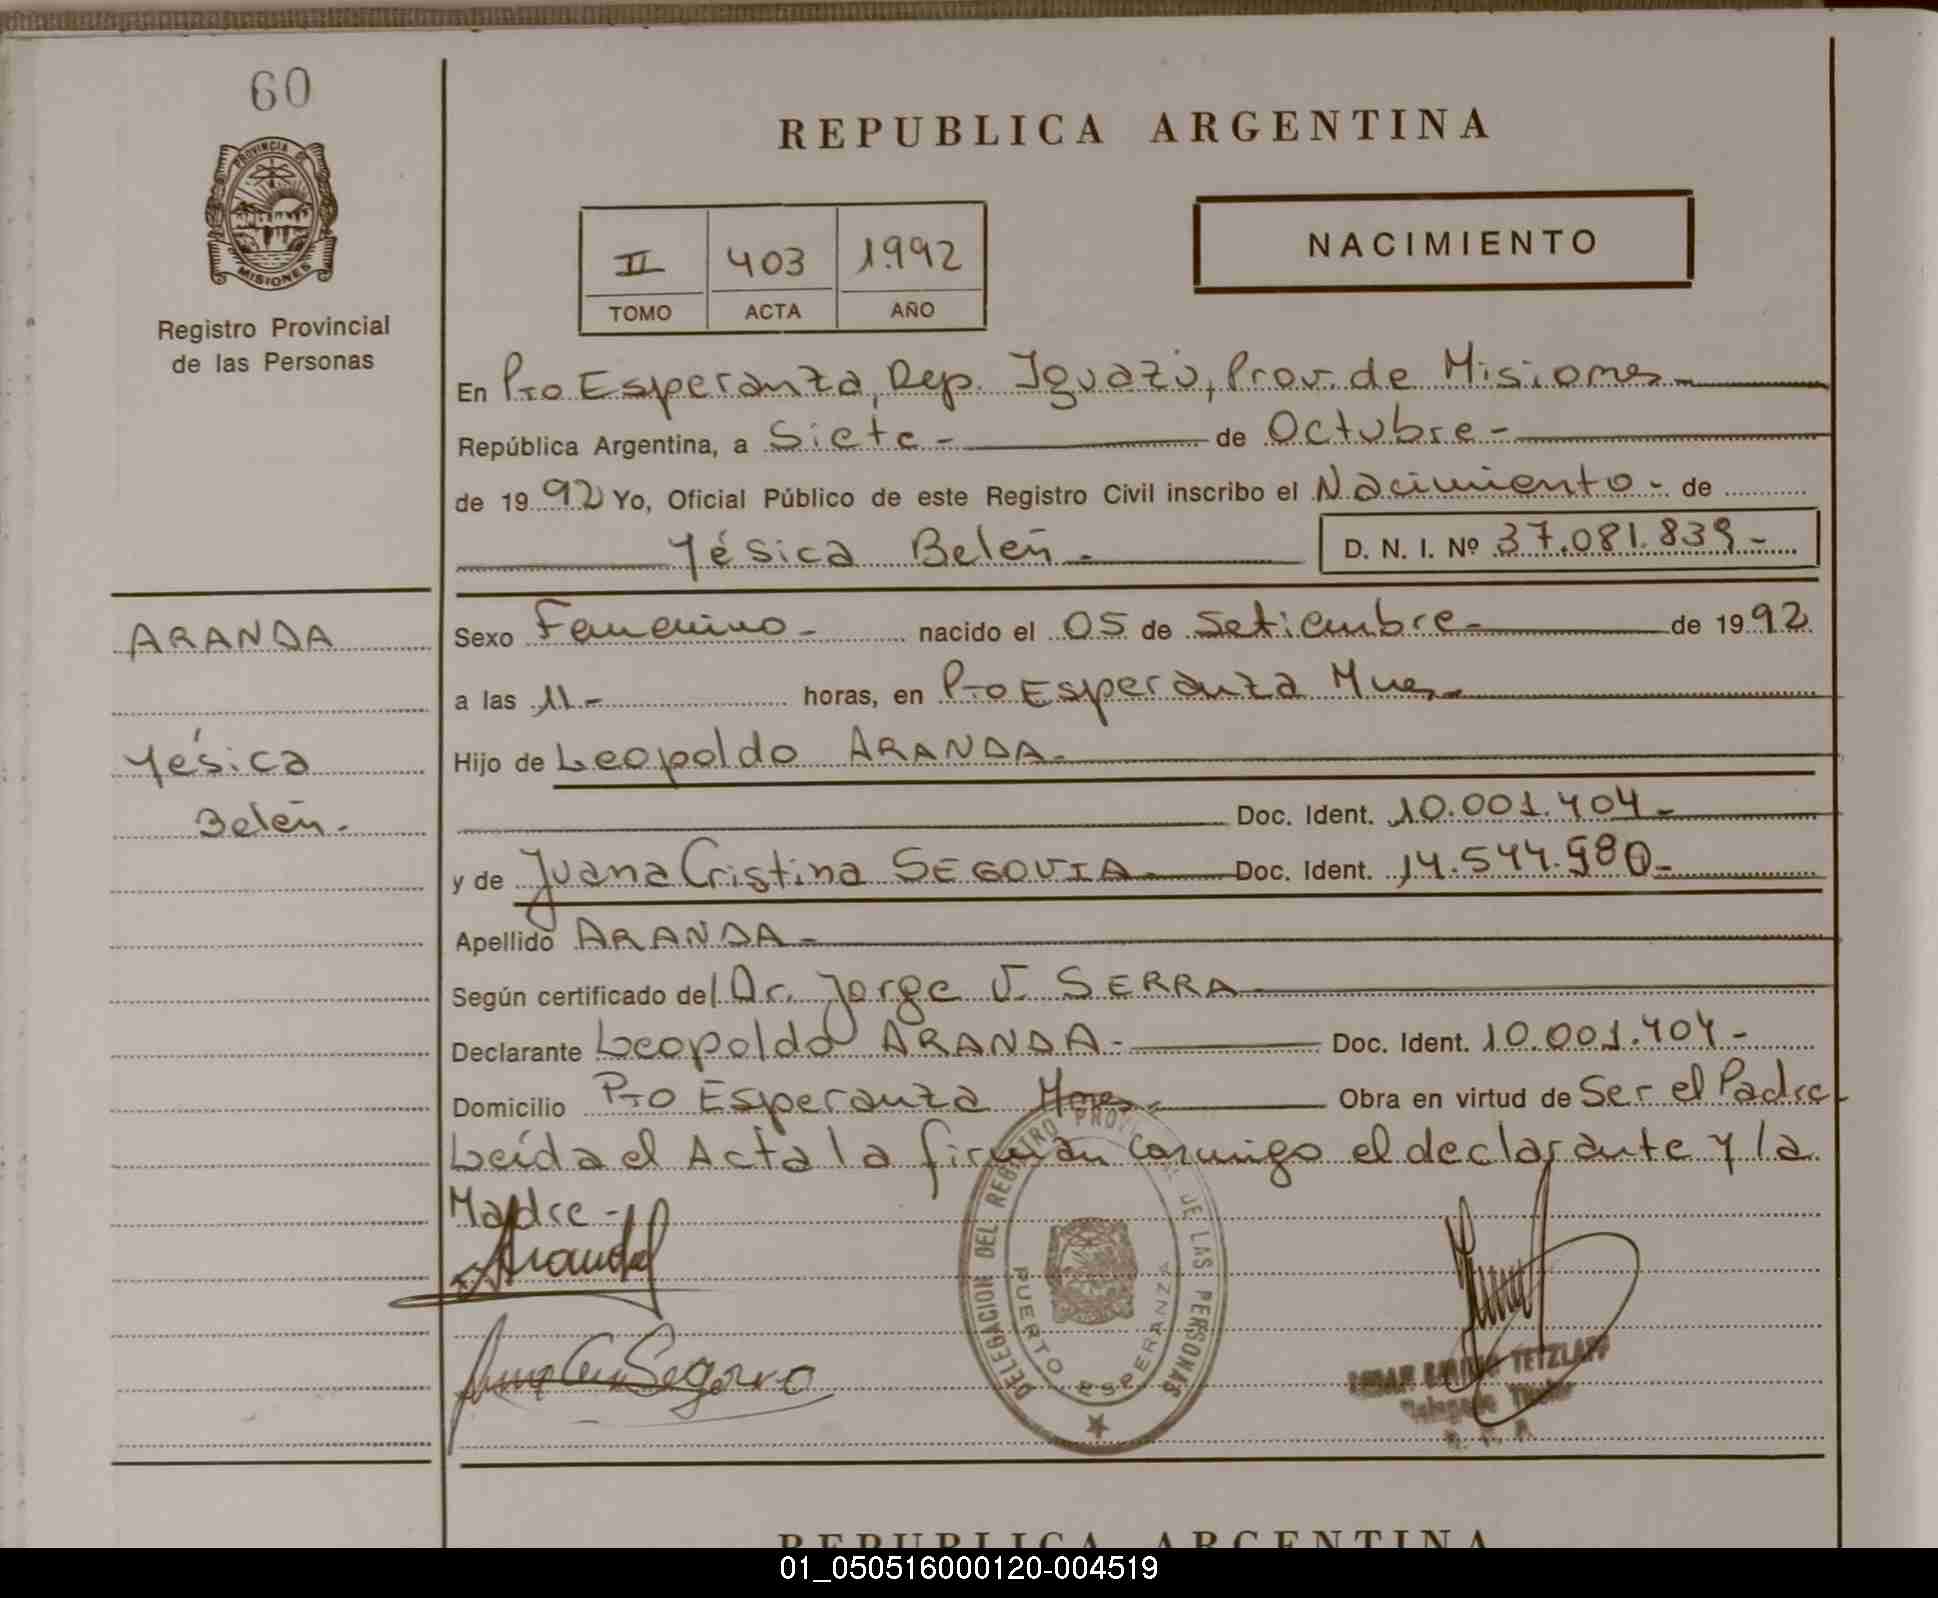 60
PROVINCIA DE
MISIONES
Registro Provincial
de las Personas
REPUBLICA ARGENTINA
NACIMIENTO
II 403 1.992
TOMO ACTA AÑO
En Pto Esperanza, Dep. Iguazú, Prov. de Misiones
República Argentina, a Siete - de Octubre -
de 1992 Yo, Oficial Público de este Registro Civil inscribo el Nacimiento - de
Yésica Belén - D. N. I. Nº 37.081.839 -
ARANDA
Yésica
Belén -
Sexo Femenino - nacido el 05 de Setiembre - de 1992
a las 11 - horas, en Pto Esperanza Mnes. -
Hijo de Leopoldo ARANDA -
Doc. Ident. 10.001.404 -
y de Juana Cristina SEGOVIA - Doc. Ident. 14.544.980 -
Apellido ARANDA -
Según certificado del Dr. Jorge J. SERRA -
Declarante Leopoldo ARANDA - Doc. Ident. 10.001.404 -
Domicilio Pto Esperanza Mnes - Obra en virtud de Ser el Padre
Leída el Acta la firman conmigo el declarante y la
Madre -
Aranda
Segovia
DELEGACION DEL REGISTRO PROVINCIAL DE LAS PERSONAS
PUERTO ESPERANZA
TETZLAFF
Titular
REPUBLICA ARGENTINA
01_050516000120-004519